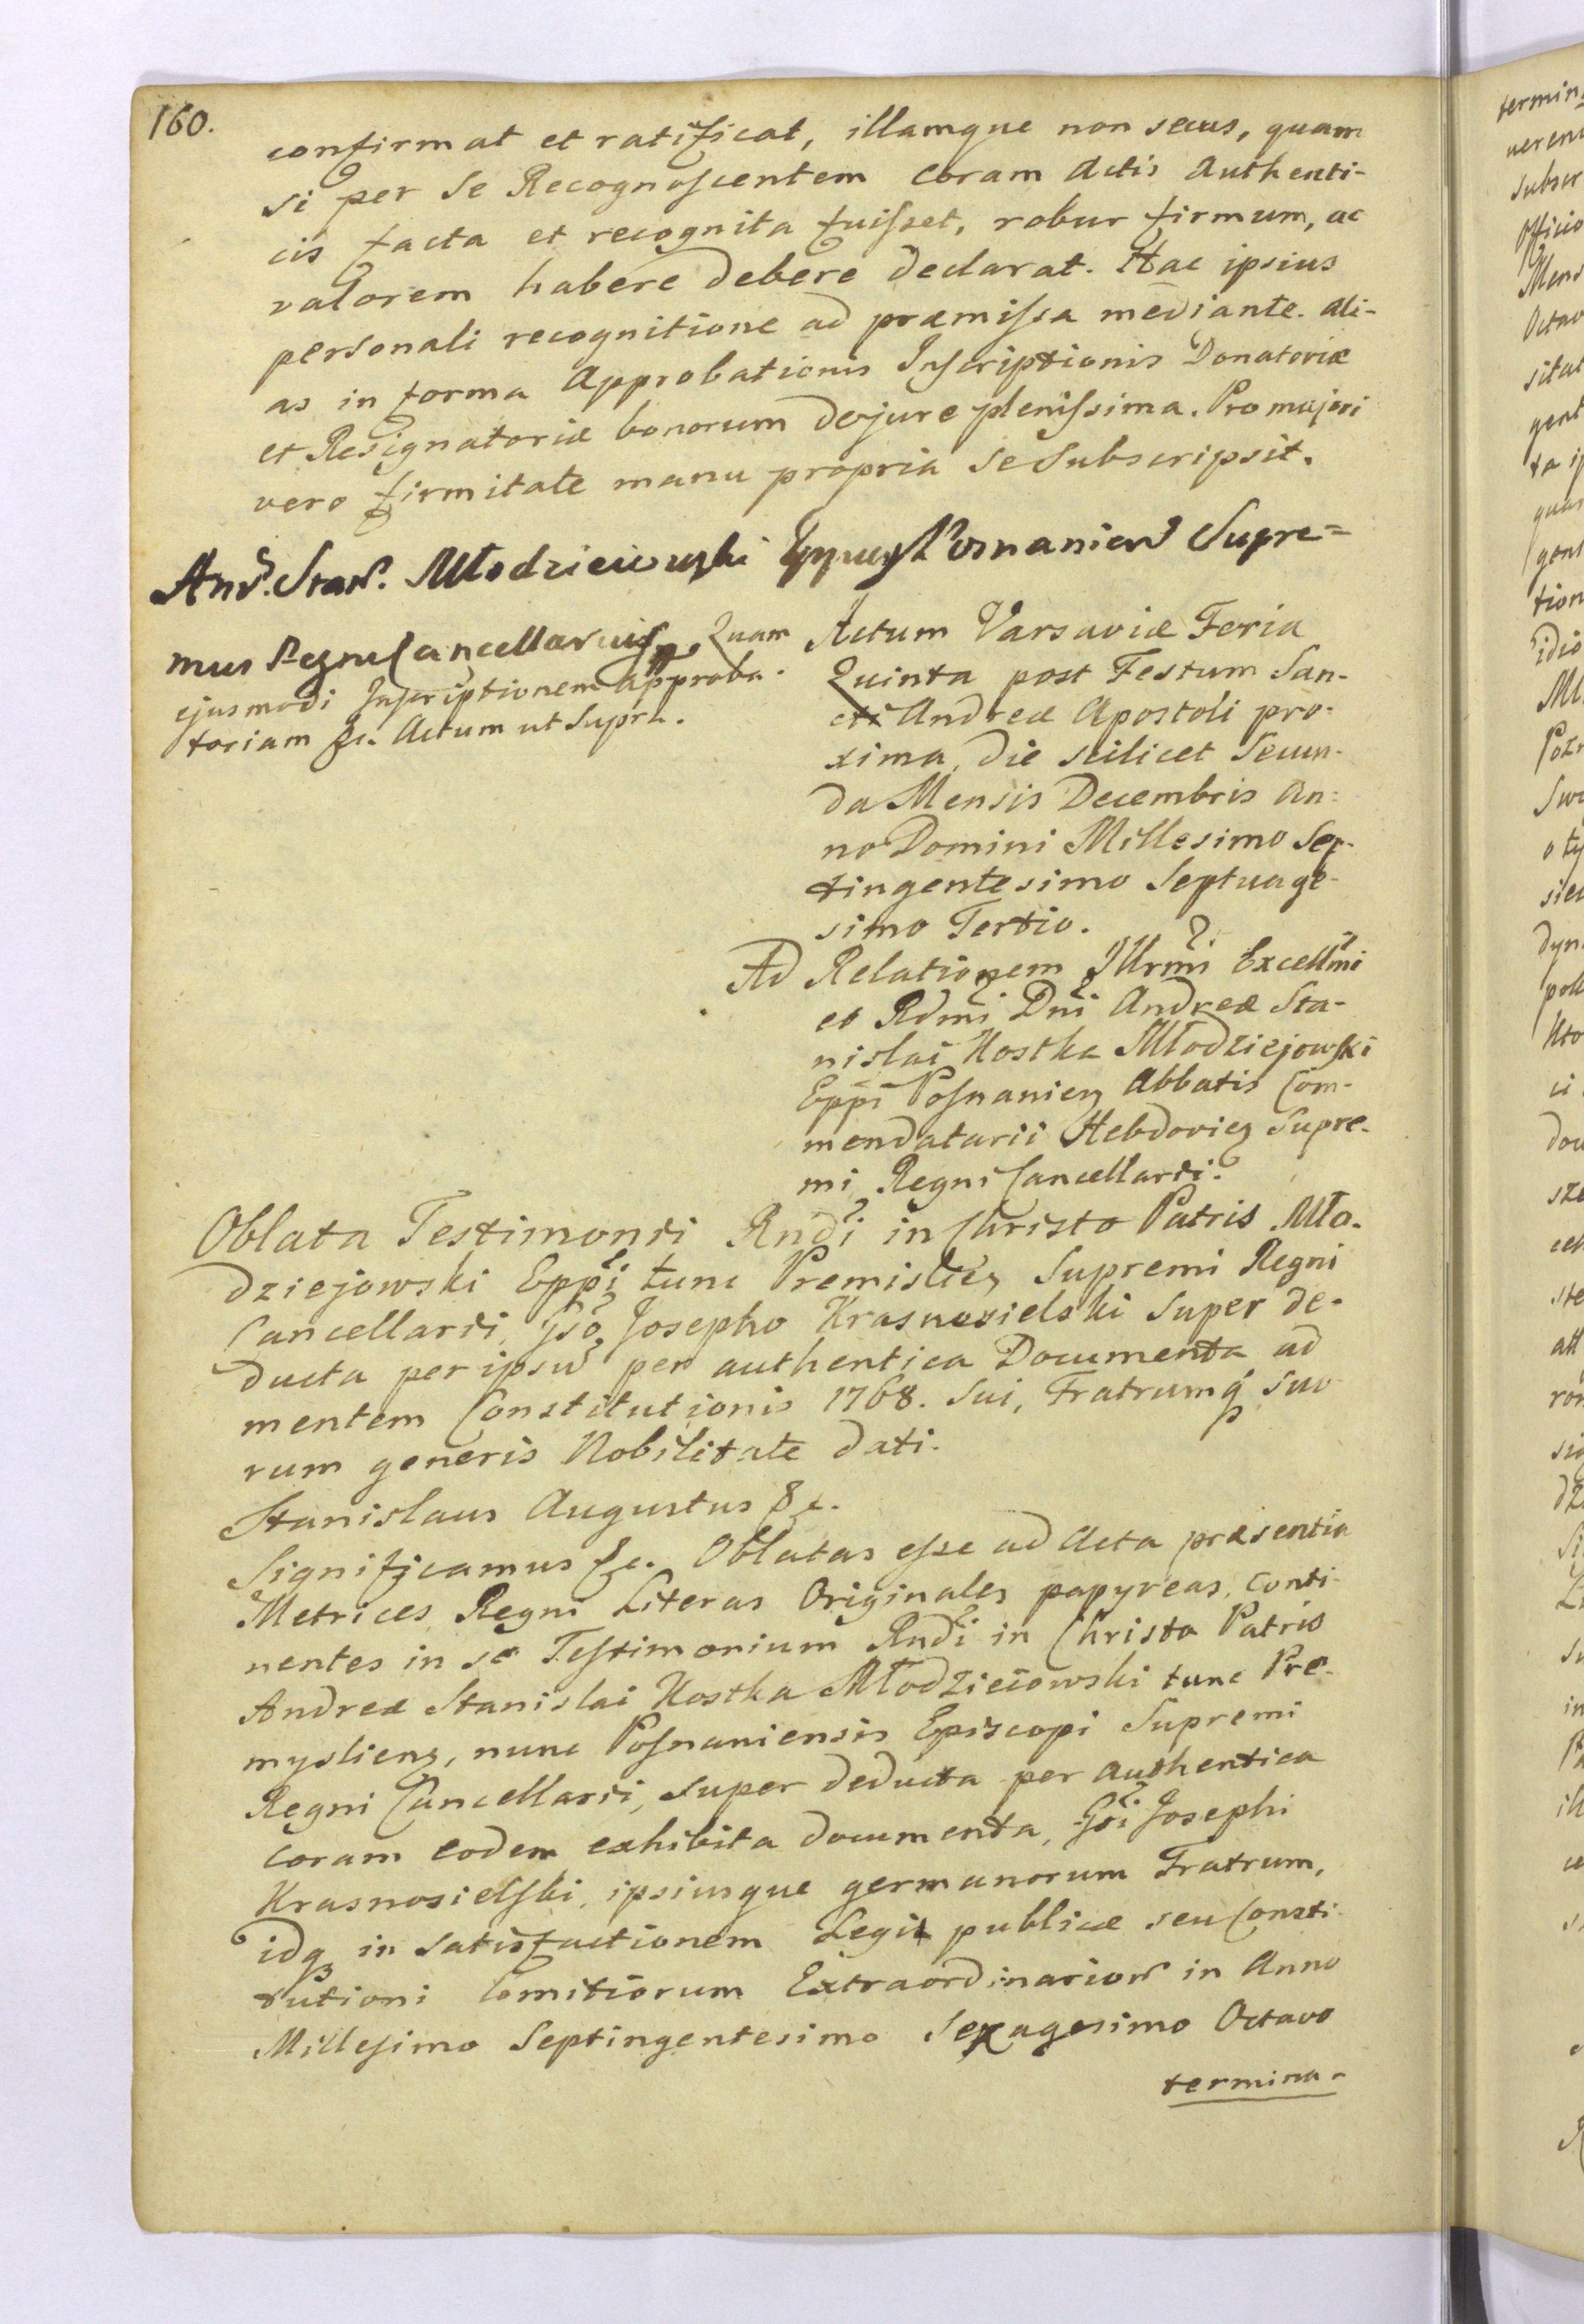 160.
confirmat et ratificat, illamque non secus, quam
si per se Recognoscentem coram Actis Authenti-
cis facta et recognita fuisset, robur firmum, ac
valorem habere debere declarat. Hac ipsius
personali recognitione ad præmissa mediante. Ali-
as in forma Approbationis Inscriptionis Donatoriæ
et Resignatoriæ bonorum dejure plenissima. Pro majori
vero firmitate manu propria se subscripsit.
And. Stan. Młodzieiowski Eppus Posnanien Supre=
mus Regni Cancellarius mpp. Quam
ejusmodi Inscriptionem approba-
toriam &c. Actum ut supra.
Actum Varsaviæ Feria
Quinta post Festum San-
cti Andreæ Apostoli pro-
xima, die scilicet Secun-
da Mensis Decembris An-
no Domini Millesimo Sep-
tingentesimo Septuage-
simo Tertio.
Ad Relationem Illrmi Excellmi
et Rdmi Dni Andreæ Sta-
nislai Kostka Młodziejowski
Eppi Posnanien Abbatis Com-
mendatarii Hebdovien Supre-
mi Regni Cancellarii.
Oblata Testimonii Rndi in Christo Patris Mło-
dziejowski Eppi tunc Premislien Supremi Regni
Cancellarii Gso Josepho Krasnosielski super de-
ducta per ipsu per authentica Documenta ad
mentem Constitutionis 1768. sui, Fratrumq suo-
rum generis Nobilitate dati.
Stanislaus Augustus &c.
Significamus &c. Oblatas esse ad Acta præsentia
Metrices Regni Literas Originales papyreas, conti-
nentes in se Testimonium Rndi in Christo Patris
Andreæ Stanislai Kostka Młodzieiowski tunc Pre-
myslien, nunc Posnaniensis Episcopi Supremi
Regni Cancellarii, super deducta per authentica
coram eodem exhibita documenta, Gsi Josephi
Krasnosielski, ipsiusque germanorum Fratrum,
idq in satisfactionem Legis publicæ seu Consti-
tutioni Comitiorum Extraordinarior in Anno
Millesimo Septingentesimo Sexagesimo Octavo
termina-